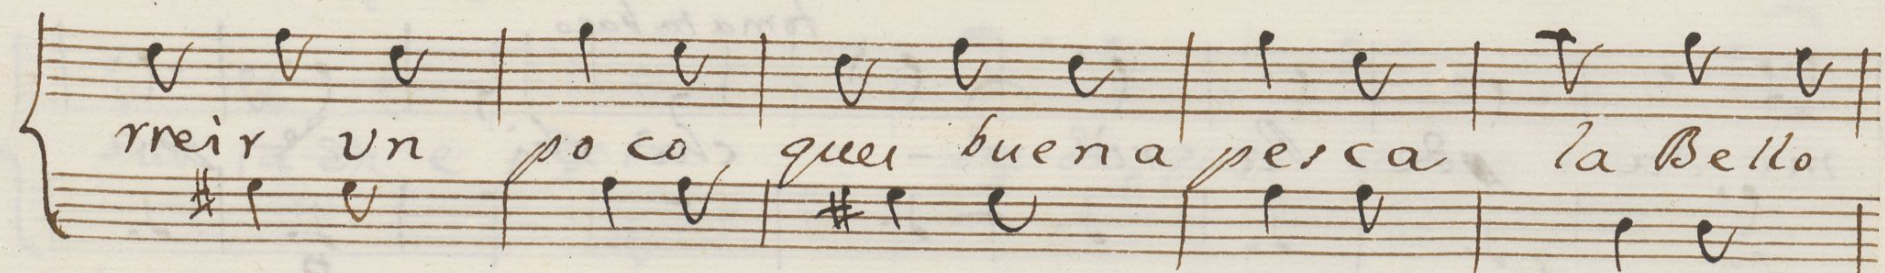 rreir un poco, quei buena pesca la Bello